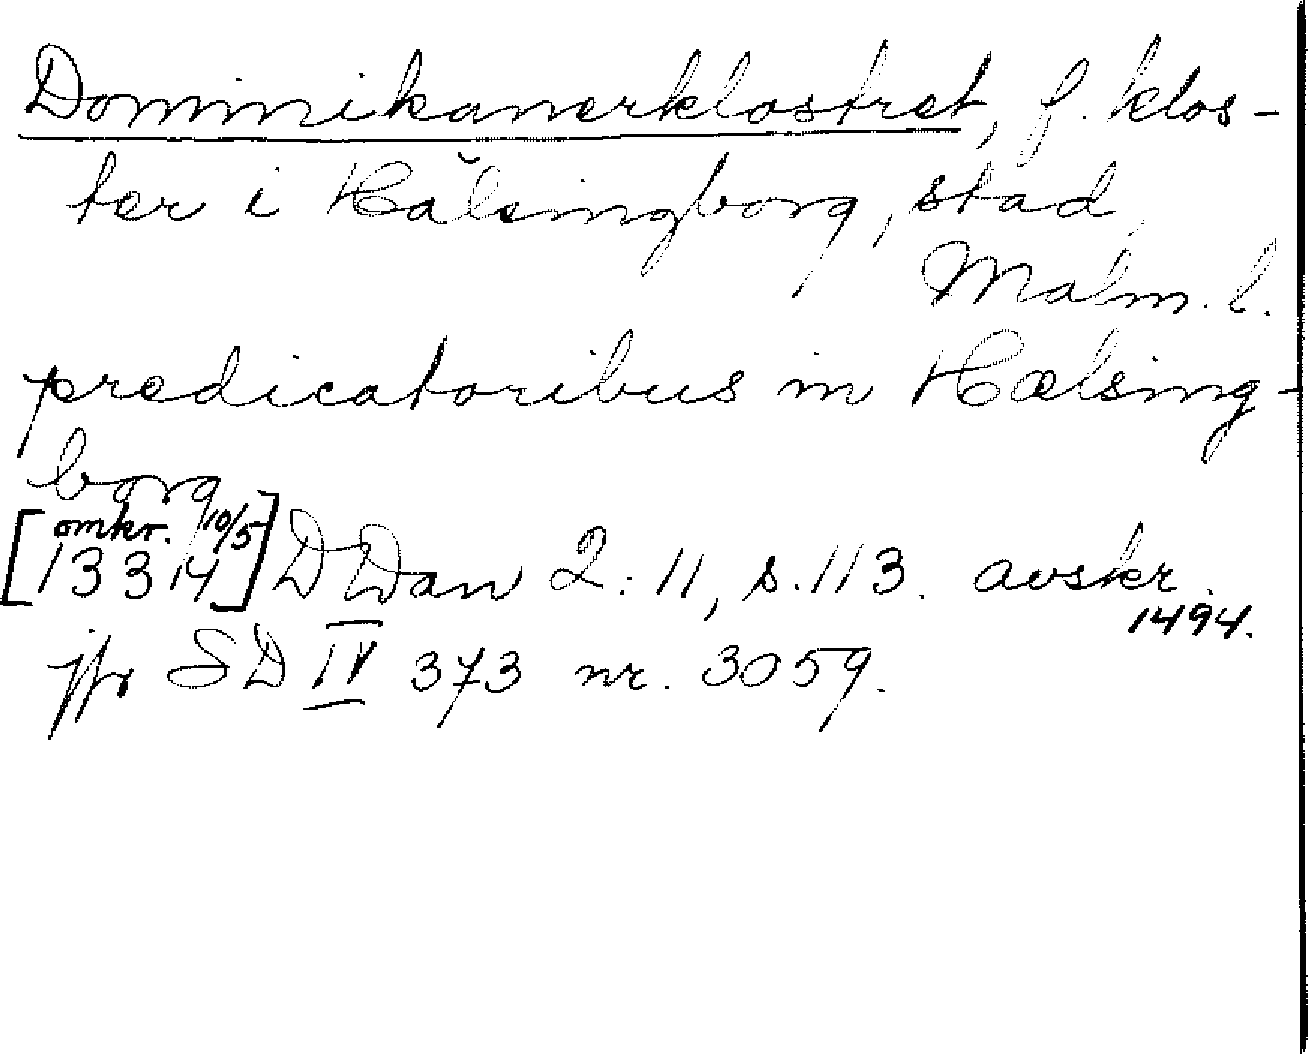 Dominikanerklostret, f. klos-
ter i Hälsingborg, stad,
Malm. l.
predicatoribus in Hælsing-
borg
[omkr. 10/5
1334] DDan 2: 11, s. 113. avskr.
1494.
jfr SD IV 373 nr. 3059.